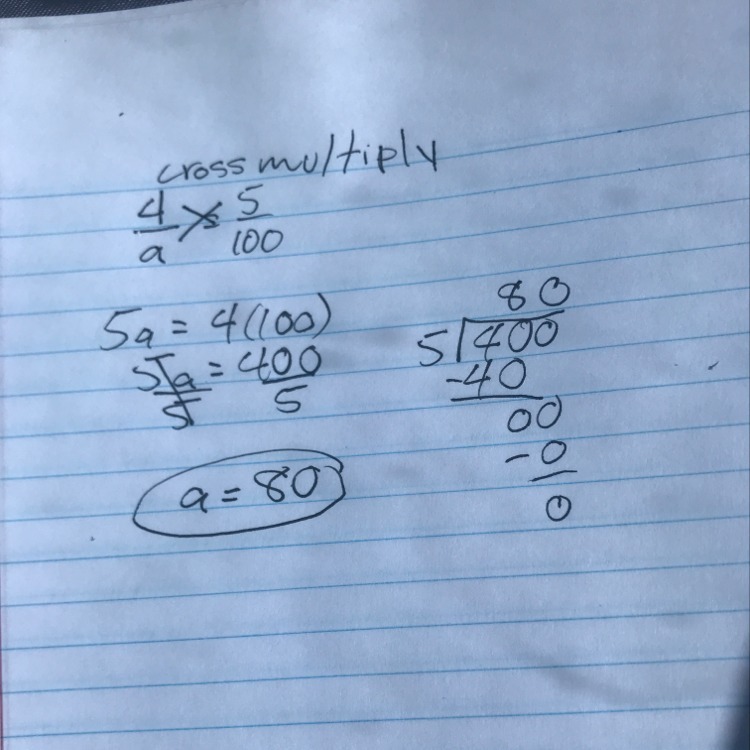 cross multiply
4/a × 5/100
5a = 4(100)
5a/5 = 400/5
a = 80
80
5 400
-40
00
-0
0